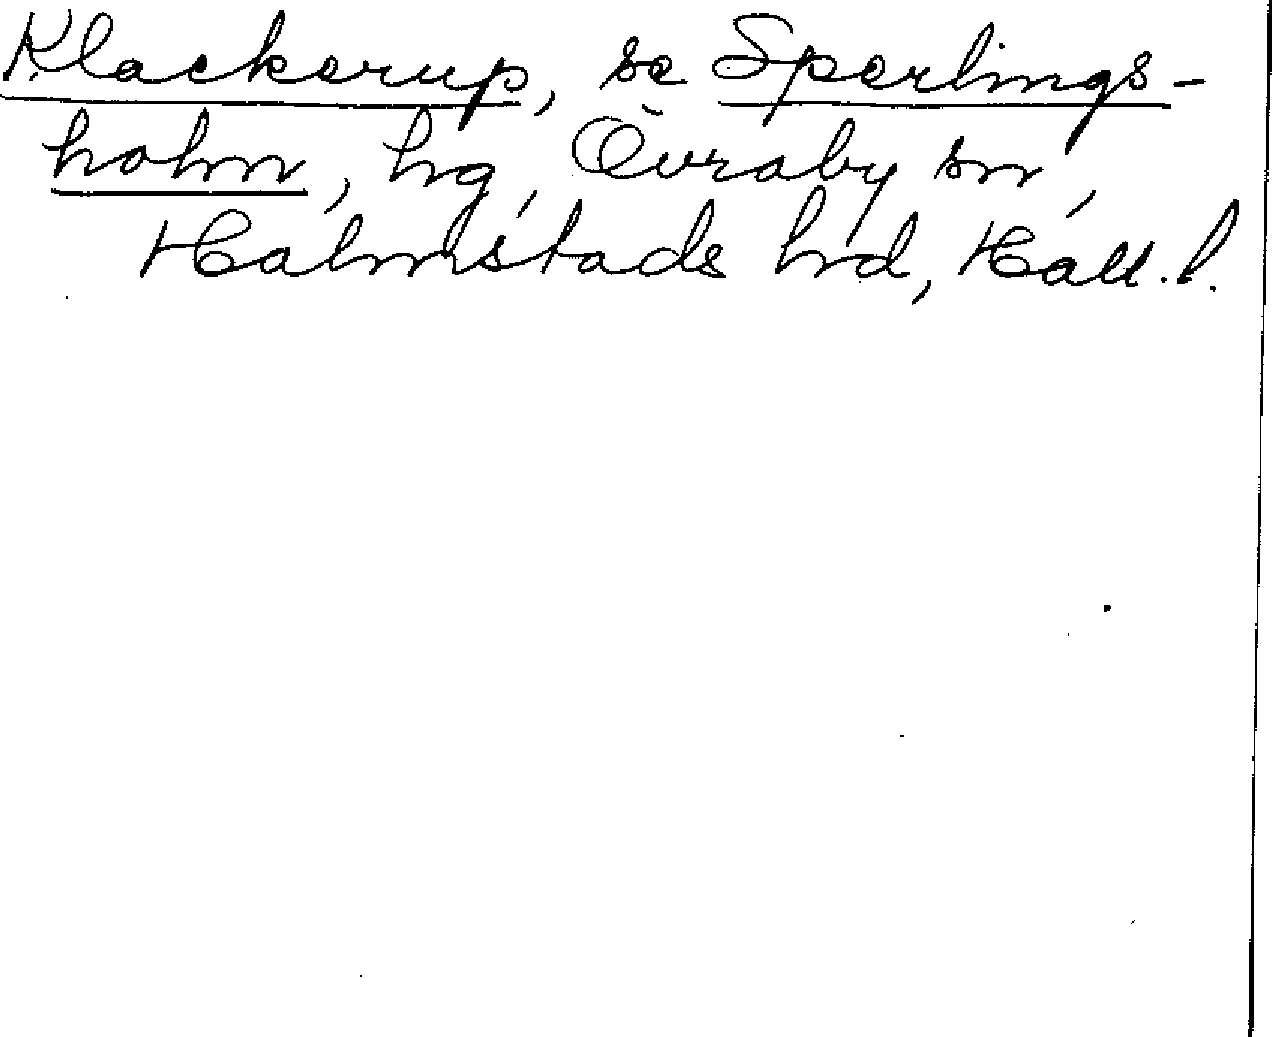 Klackerup, se Sperlings-
holm, hg, Övraby sn,
Halmstads hd, Hall. l.